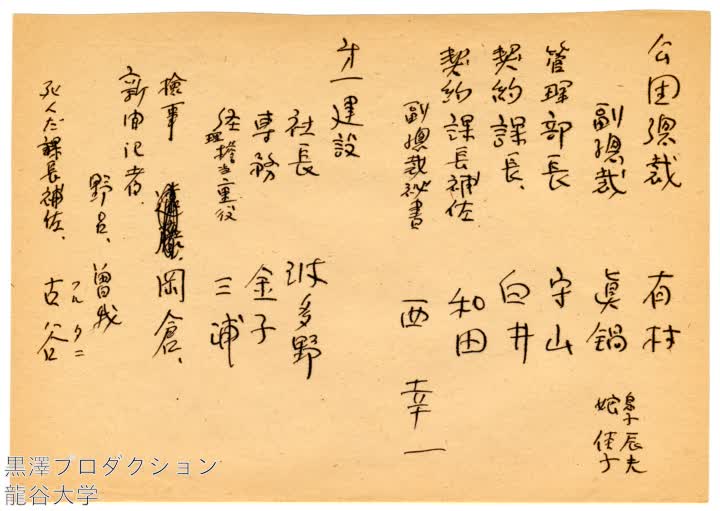 公団總裁 有村
副總裁 眞鍋
息子 辰夫
娘 佳子
管理部長 守山
契約課長、白井
契約課長補佐 和田
副總裁秘書 西 幸一
才一建設
社長 波多野
専務 金子
経理擔当重役 三浦
検事 岡倉、
新聞記者、
野呂、曽我
死んだ課長補佐、古谷
フル タニ
黒澤プロダクション
龍谷大学